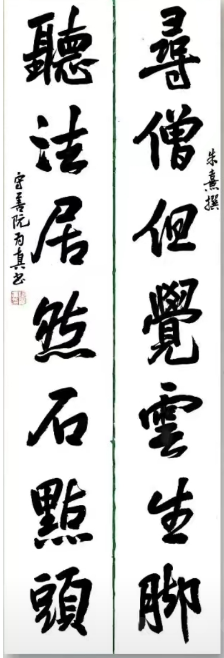 尋僧但覺雲生脚
朱熹撰
聽法居然石點頭
守善阮丙真书